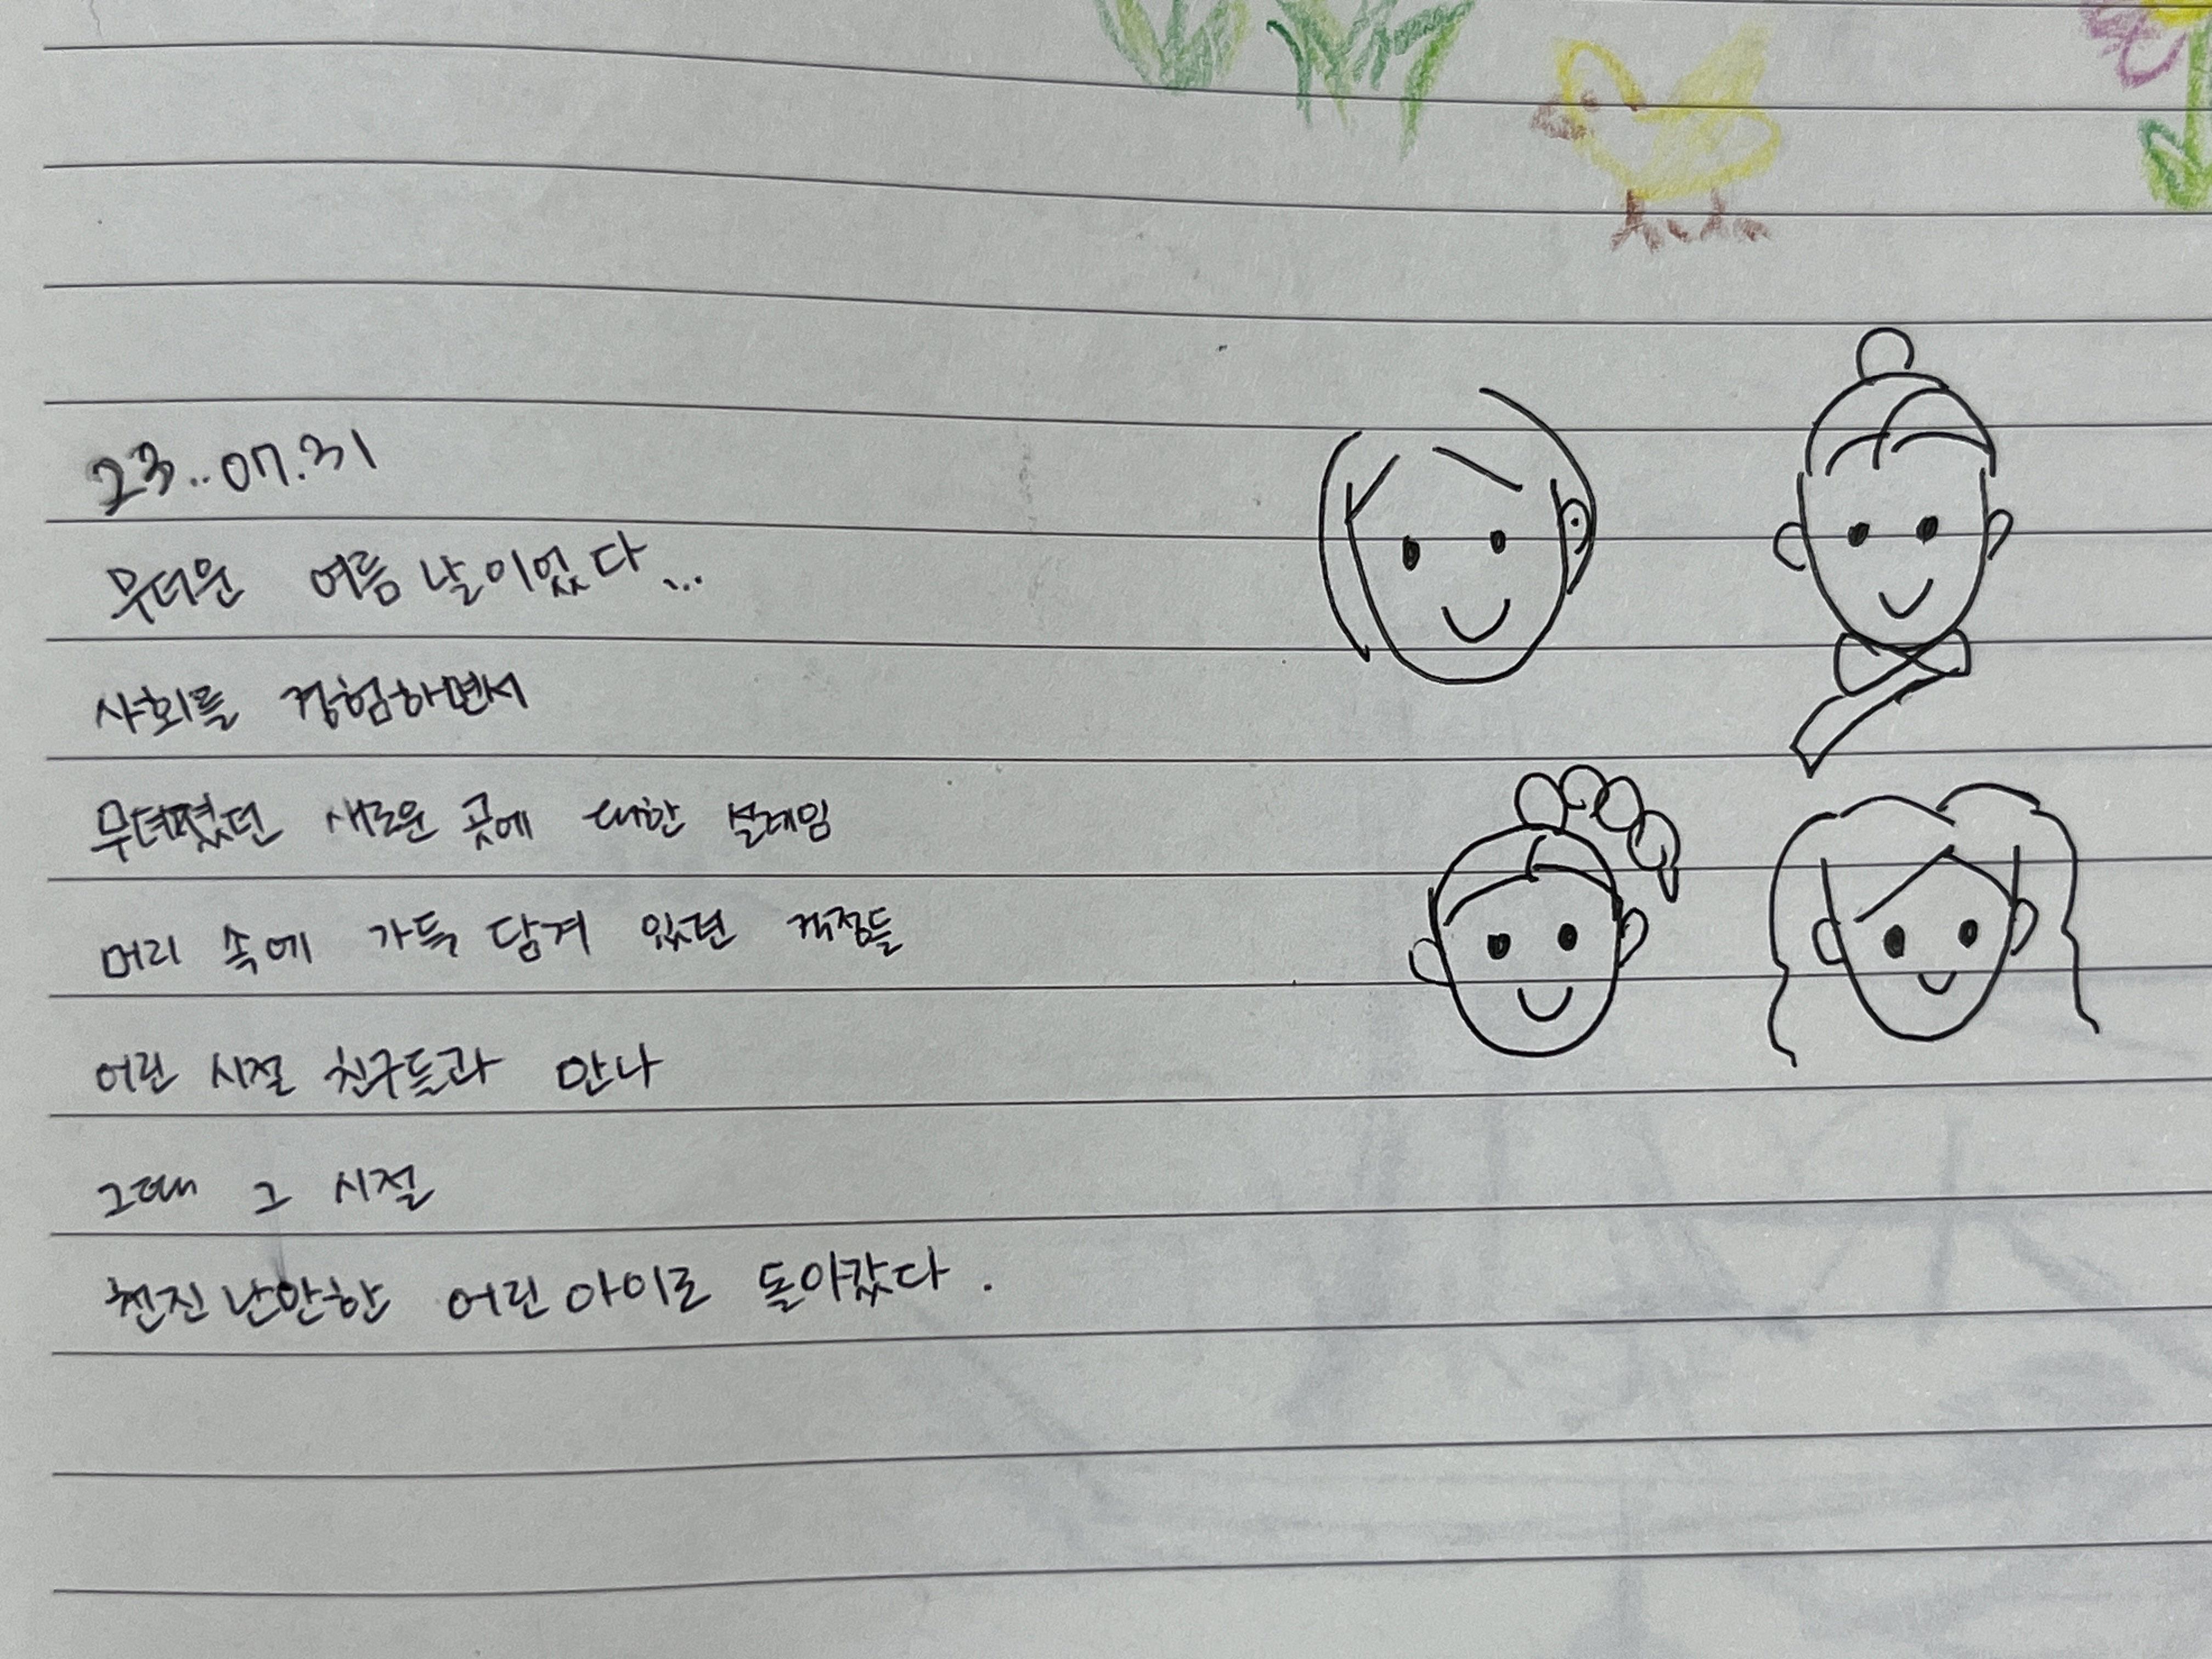 23..07.31
무더운 여름 날이었다...
사회를 경험하면서
무뎌졌던 새로운 곳에 대한 설레임
머리 속에 가득 담겨 있던 걱정들
어린 시절 친구들과 만나
그때 그 시절
천진난만한 어린아이로 돌아갔다.